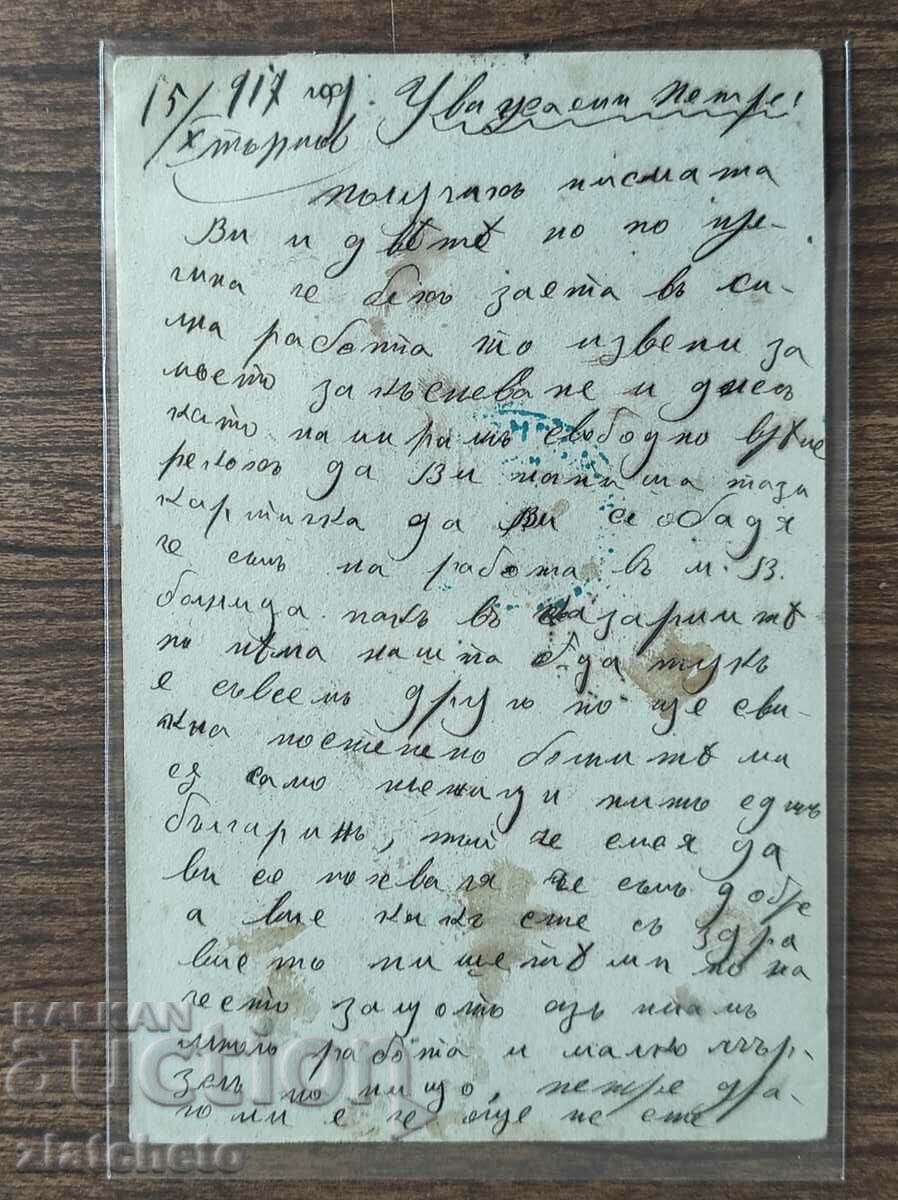 15/X 917 год. Уважаеми Петре!
Търнов
Получихъ писмата
Ви и двѣтѣ но по при-
чина че бехъ заета въ си-
лна работа то извени за
моето закъсневане и днесъ
като намирамъ свободно врѣме
рекохъ да Ви напиша тази
картичка да Ви се обадя
че съмъ на работа въ м. В.
болница пакъ въ казармитѣ
но нѣма нашта ода тукъ
е съвсемъ друго но ще сви-
кна постепено болнитѣ ми
съ само немци нито единъ
българинъ, тъй че смея да
ви се похваля че съмъ добре
а вие какъ сте съ здра
вието пишетѣ ми по на
често защото азъ имамъ
много работа и малко мър-
зелъ но нищо, Петре дра-
гоми е че още не сте
BALKAN
auction
zlatcheto